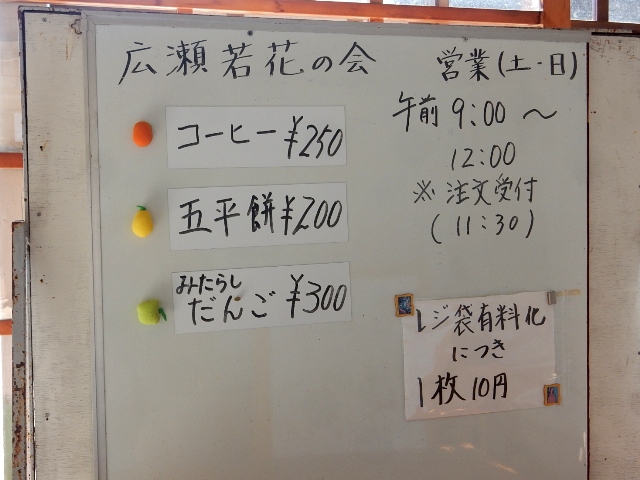 広瀬若花の会
営業(土・日)
午前 9:00 〜
12:00
※ 注文受付
(11:30)
コーヒー ¥250
五平餅 ¥200
みたらし
だんご ¥300
レジ袋有料化
につき
1枚 10円